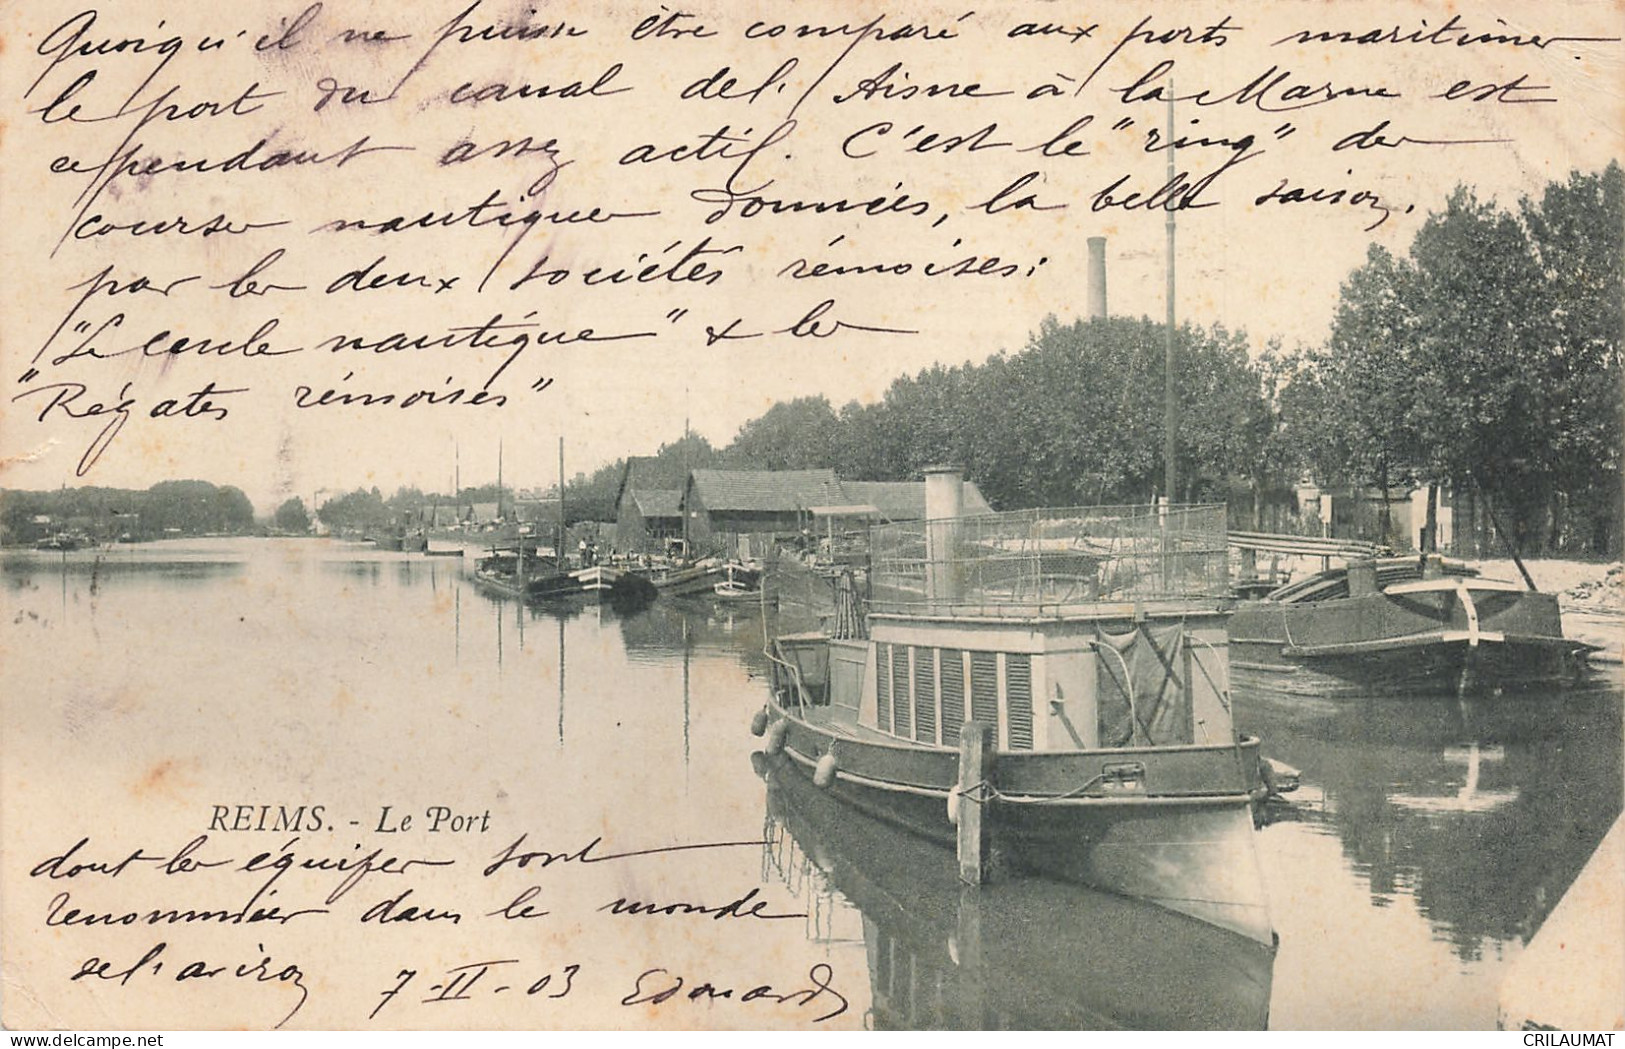 Quoiqu'il ne puisse être comparé aux ports maritimes
le port du canal del'Aisne à la Marne est
cependant assez actif. C'est le "ring" des
courses nautiques données, la belle saison,
par les deux sociétés rémoises:
"Le cercle nautique" & les
"Régates rémoises"
REIMS. - Le Port
dont les équipes sont
renommées dans le monde
del'aviron 7-II-03 Edouard
delcampe.net
CRILAUMAT